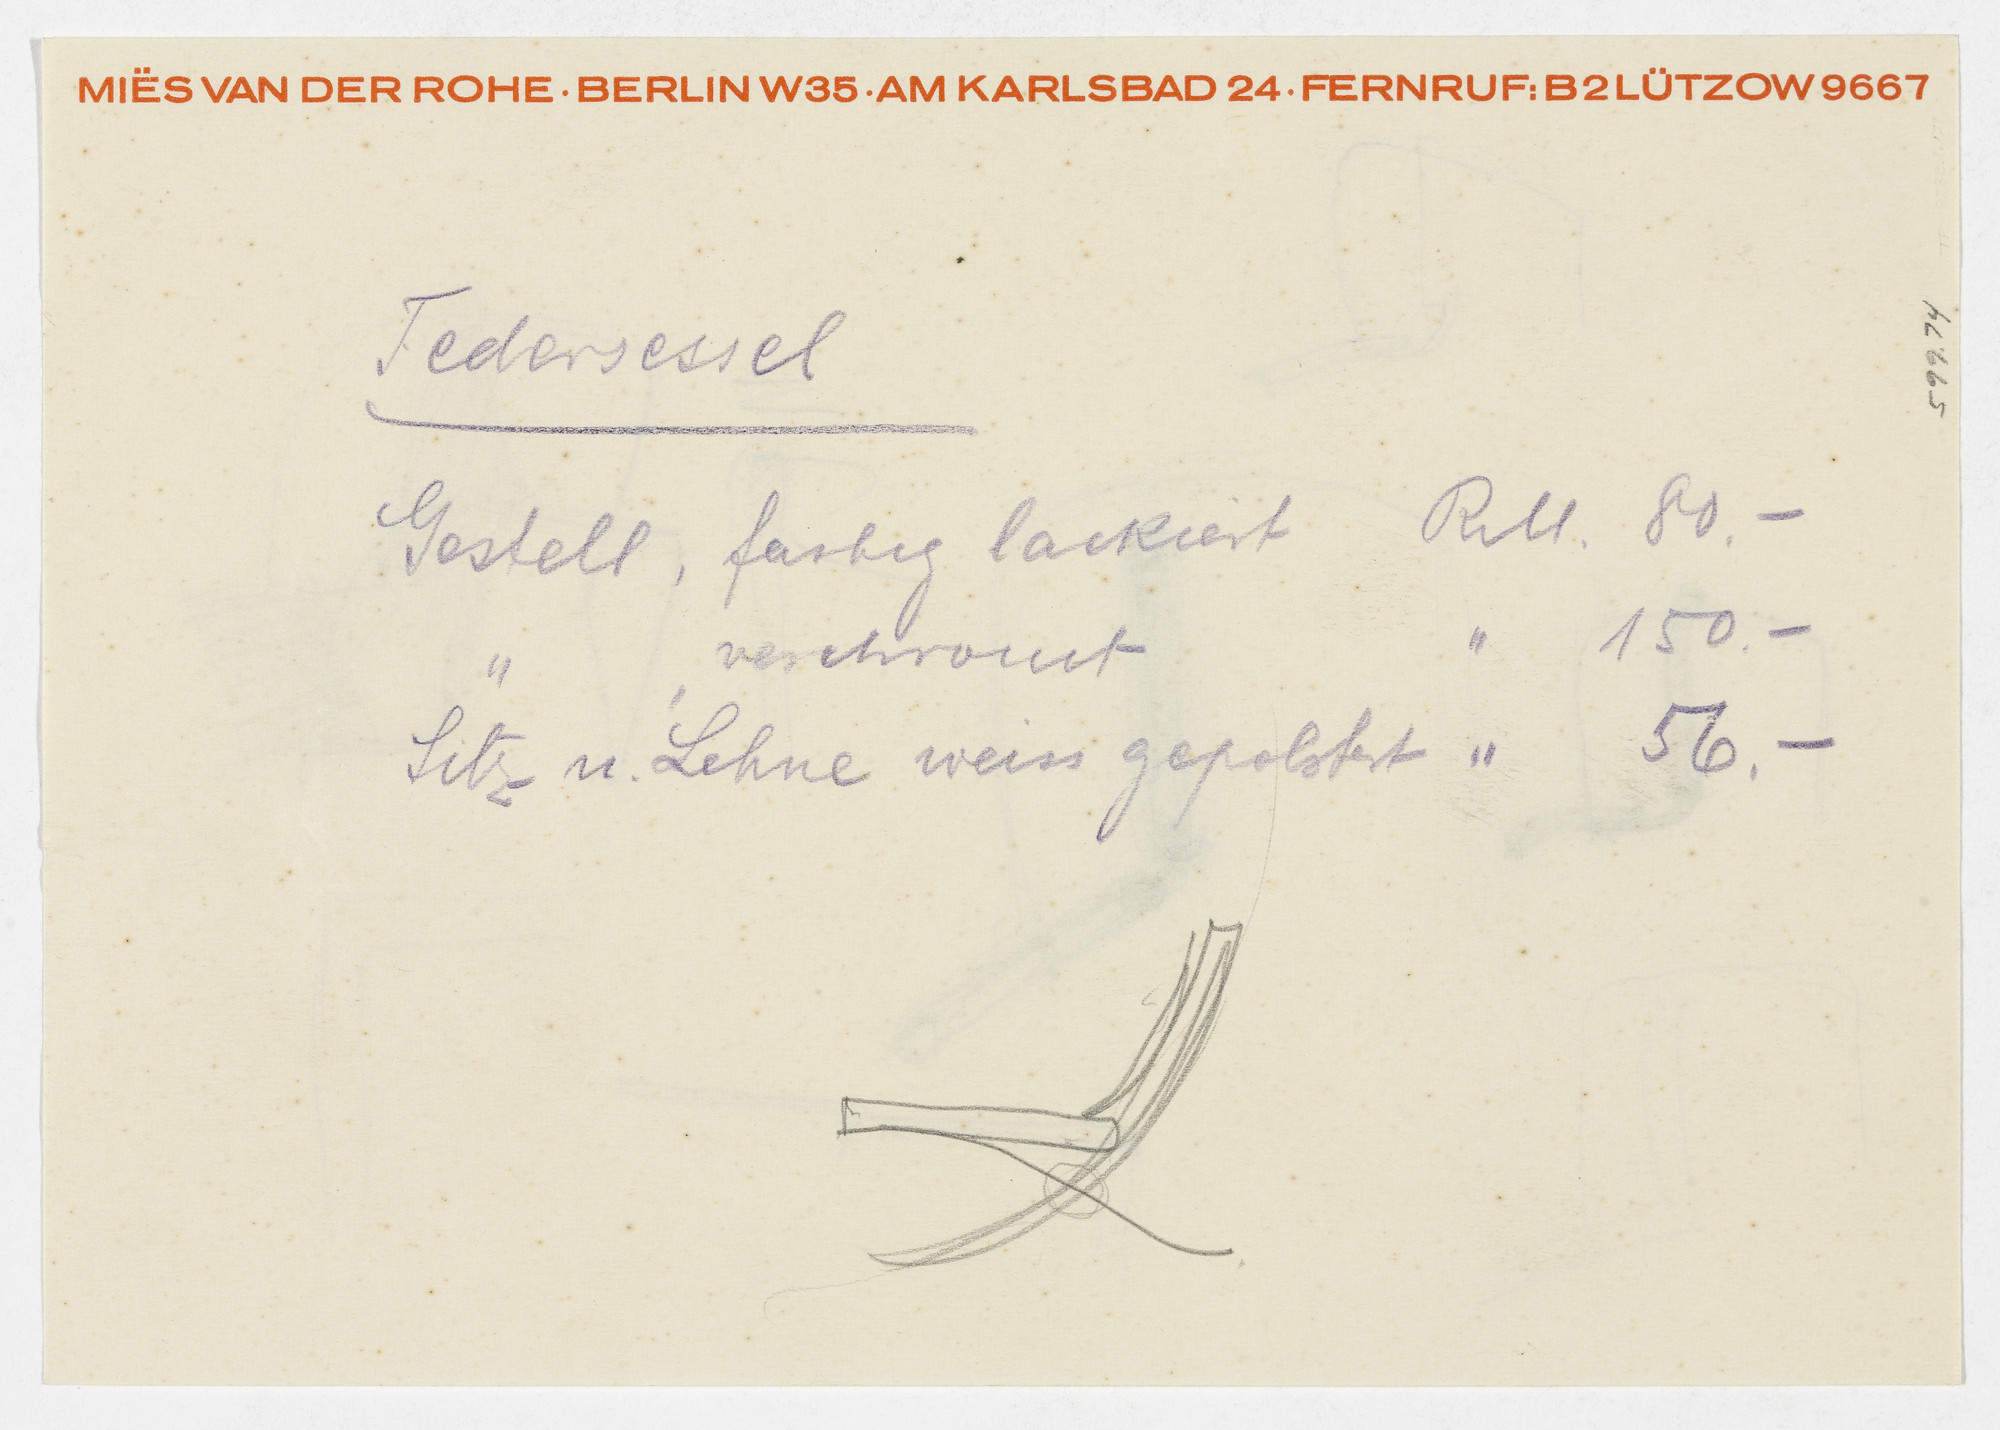 MIËS VAN DER ROHE · BERLIN W35 · AM KARLSBAD 24 · FERNRUF: B2 LÜTZOW 9667
Federsessel
Gestell, farbig lackiert RM. 80.—
" , verchromt " 150.—
Sitz u. Lehne weiss gepolstert " 56.—
599.74